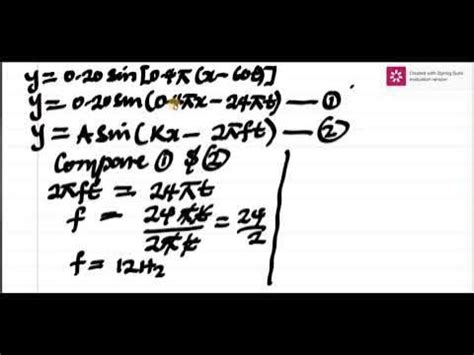 y = 0.20 sin[0.4π(x - 60t)]
y = 0.20 sin(0.4πx - 24πt) — ①
y = A sin(Kx - 2πft) — ②
Compare ① & ②
2πft = 24πt
f = 24πt/2πt = 24/2
f = 12Hz
Created with Spring Suite
evaluation version